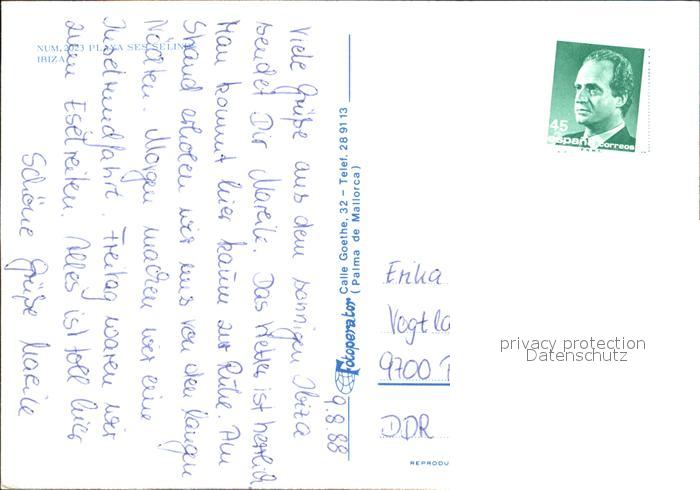 NUM. 2023 PLAYA SES SELINES
IBIZA
Viele Grüße aus dem sonnigen Ibiza
sendet Dir Mareile. Das Wetter ist herrlich
Man kommt hier kaum zur Ruhe. Am
Strand erholen wir uns von den langen
Nächten. Morgen machen wir eine
Inselrundfahrt. Freitag waren wir
zum Eselreiten. Alles ist toll hier
Schöne Grüße Mareile
9.8.88
Fotoperator Calle Goethe, 32 - Telef. 28 91 13
(Palma de Mallorca)
45
españa correos
Erika
Vogtla
9700
DDR
REPRODU
privacy protection
Datenschutz